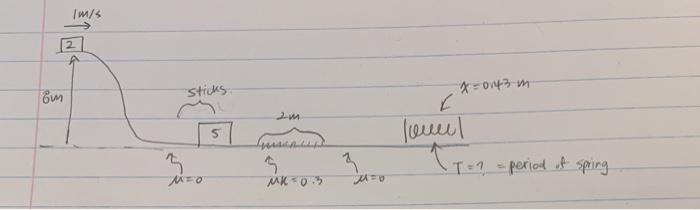 1m/s
2
8m
sticks
5
2m
x = 0.43 m
μ=0
μK=0.3
μ=0
T=? = period of spring